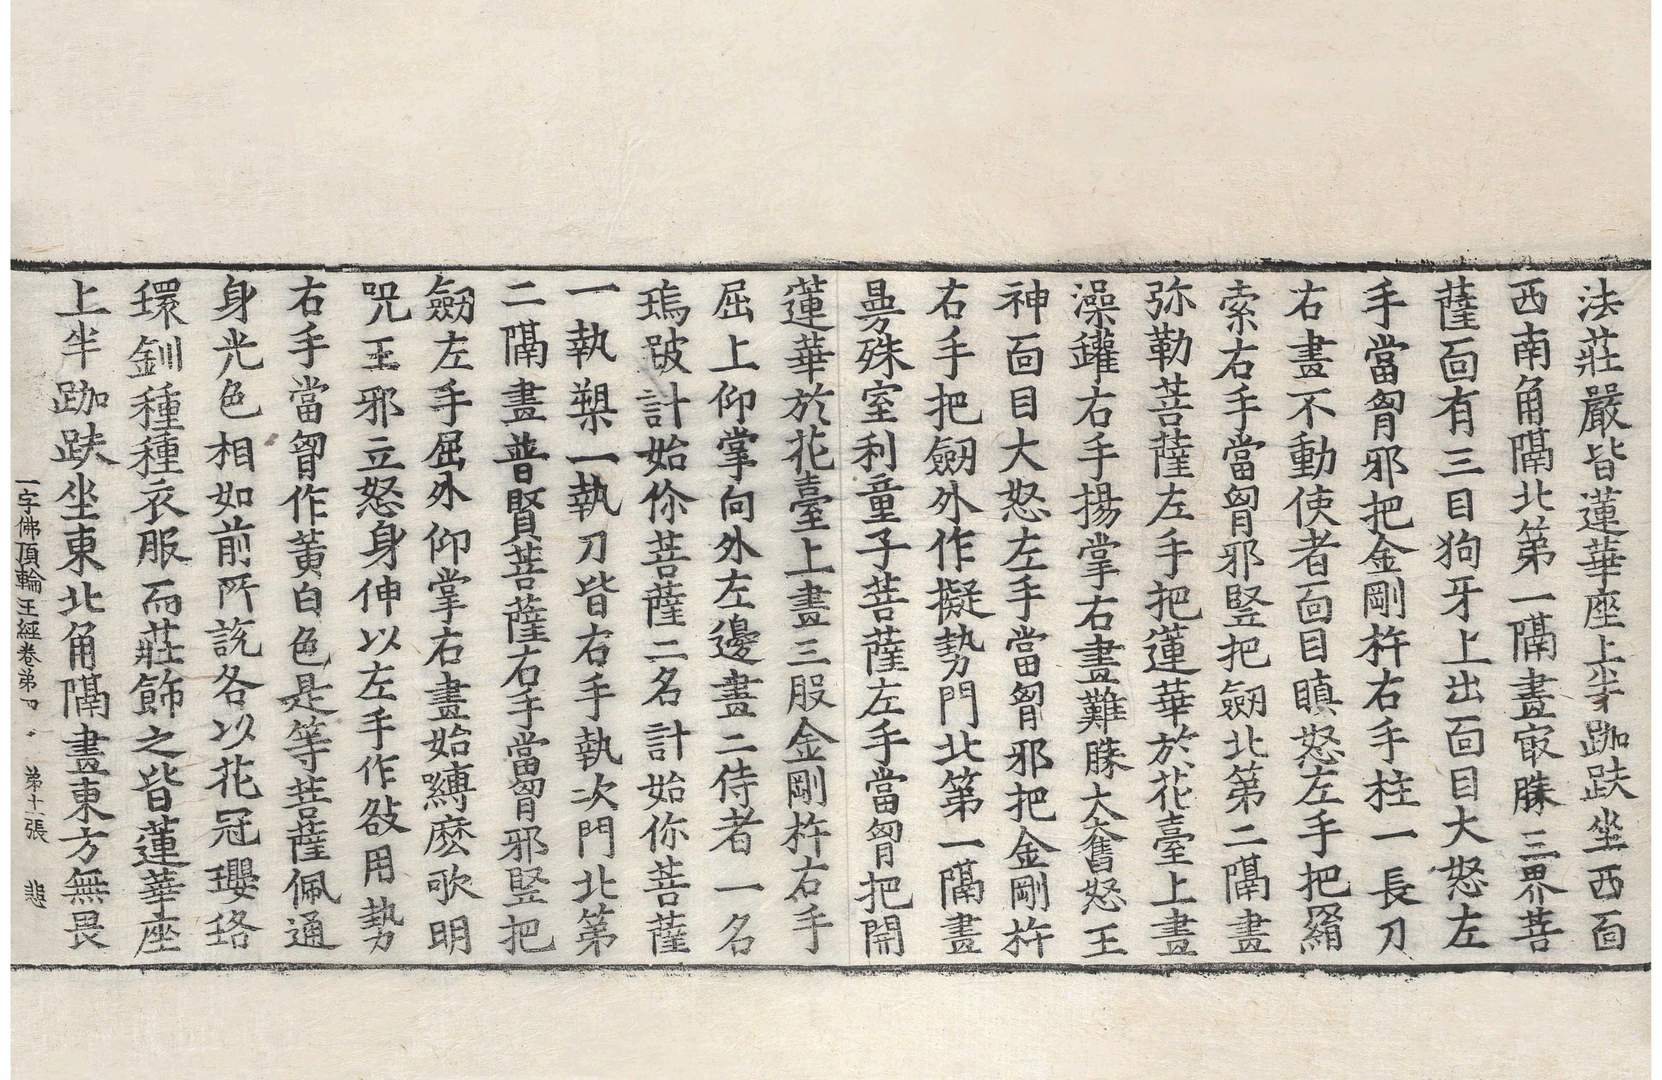 法莊嚴皆蓮華座上半跏趺坐西面
西南角隔北第一隔畫㝡勝三界菩
薩面有三目狗牙上出面目大怒左
手當胷邪把金剛杵右手柱一長刀
右畫不動使者面目瞋怒左手把羂
索右手當胷邪竪把劒北第二隔畫
弥勒菩薩左手把蓮華於花臺上畫
澡罐右手揚掌右畫難勝大奮怒王
神面目大怒左手當胷邪把金剛杵
右手把劒外作擬勢門北第一隔畫
曼殊室利童子菩薩左手當胷把開
蓮華於花臺上畫三股金剛杵右手
屈上仰掌向外左邊畫二侍者一名
瑦跛計始你菩薩二名計始你菩薩
一執槊一執刀皆右手執次門北第
二隔畫普賢菩薩右手當胷邪竪把
劒左手屈外仰掌右畫始嚩麽歌明
咒王邪立怒身伸以左手作敆用勢
右手當胷作黃白色是等菩薩佩通
身光色相如前所說各以花冠瓔珞
環釧種種衣服而莊飾之皆蓮華座
上半跏趺坐東北角隔畫東方無畏
一字佛頂輪王經卷第四 第十一張 悲